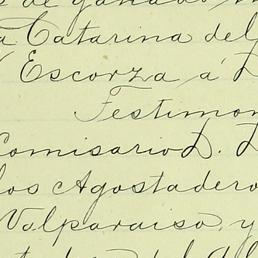 s de ganado m
a Catarina del
Escorza á D
Testimon
Comisario D. D
los Agostadero
Valparaiso, y